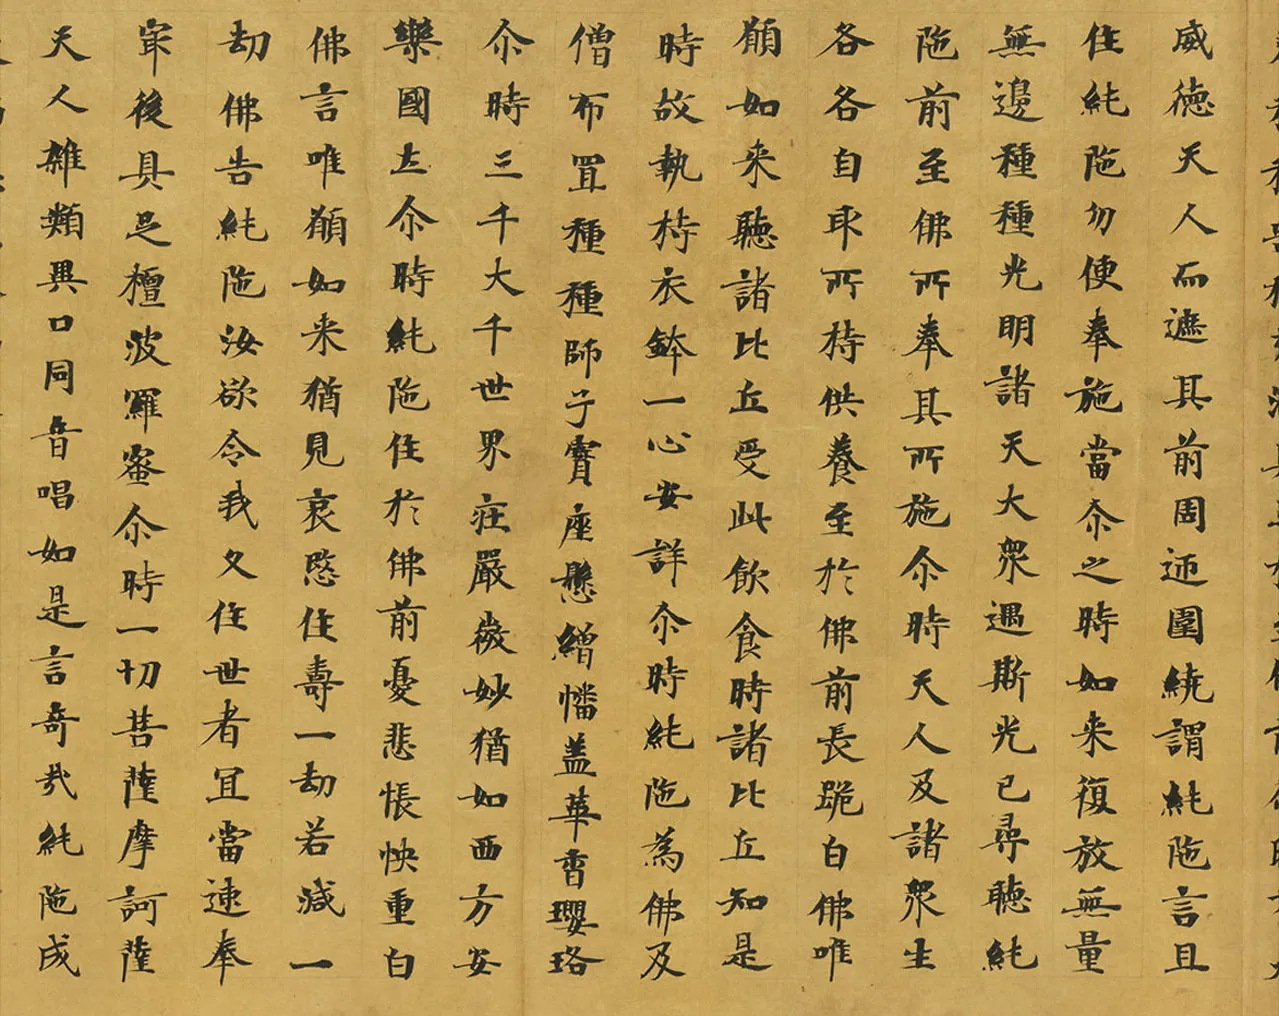 威德天人而遮其前周迊圍繞謂純陁言且
住純陁勿使奉施當尒之時如来復放無量
無邊種種光明諸天大眾遇斯光已尋聽純
陁前至佛所奉其所施尒時天人及諸眾生
各各自取所持供養至於佛前長跪白佛唯
願如来聽諸比丘受此飲食時諸比丘知是
時故執持衣鉢一心安詳尒時純陁為佛及
僧布置種種師子寳座懸繒幡盖華香瓔珞
尒時三千大千世界莊嚴㣲妙猶如西方安
樂國土尒時純陁住於佛前憂悲悵怏重白
佛言唯願如来猶見哀愍住壽一劫若減一
劫佛告純陁汝欲令我久住世者宜當速奉
冣後具足檀波羅蜜尒時一切菩薩摩訶薩
天人雜類異口同音唱如是言奇哉純陁成